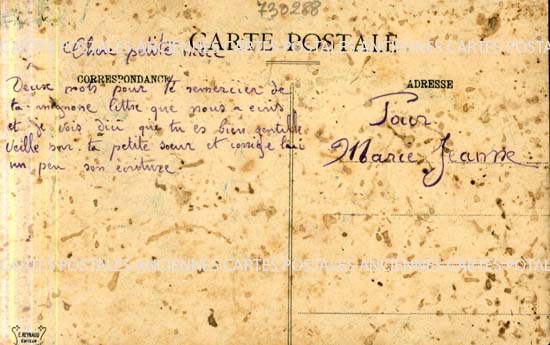 730288
CARTE POSTALE
Cher petite nièce
CORRESPONDANCE
ADRESSE
Deux mots pour te remercier de
ta mignone littre que nous a
et je vois dici que tu es bien gentille
veille sur ta petite sœur et corrige lui
un peu son écriture
Pour
Marie Jeanne
ANCIENNES CARTES POSTALES ANCIENNES CARTES POSTALES ANCIENNES CARTES POSTALES
E. REYNAUD
EDITEUR